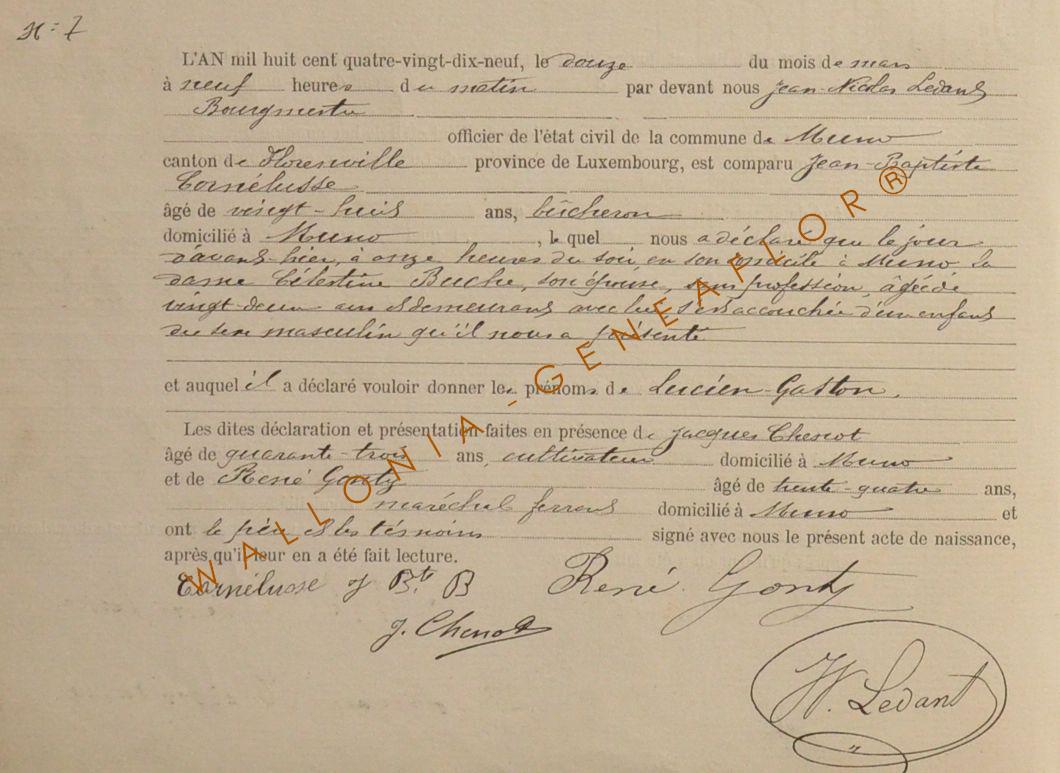 N° 7
L'AN mil huit cent quatre-vingt-dix-neuf, le douze du mois de mars
à neuf heures du matin par devant nous Jean-Nicolas Ledant
Bourgmestre
officier de l'état civil de la commune de Muno
canton de Florenville province de Luxembourg, est comparu Jean-Baptiste
Cornélusse
âgé de vingt-huit ans, bûcheron
domicilié à Muno, lequel nous a déclaré que le jour
d'avant-hier, à onze heures du soir en son domicile à Muno la
dame Célestine Buche, son épouse, sans profession, âgée de
vingt-deux ans et demeurant avec lui s'est accouchée d'un enfant
du sexe masculin qu'il nous a présenté
et auquel il a déclaré vouloir donner les prénoms de Lucien-Gaston.
Les dites déclaration et présentation faites en présence de Jacques Chenot
âgé de quarante-trois ans, cultivateur domicilié à Muno
et de René Gonty âgé de trente-quatre ans,
maréchal ferrant domicilié à Muno et
ont le père et les témoins signé avec nous le présent acte de naissance,
après qu'il leur en a été fait lecture.
Cornélusse J Bte B René Gonty
J. Chenot
N. Ledant
WALLONIA-GENEAFLOR®